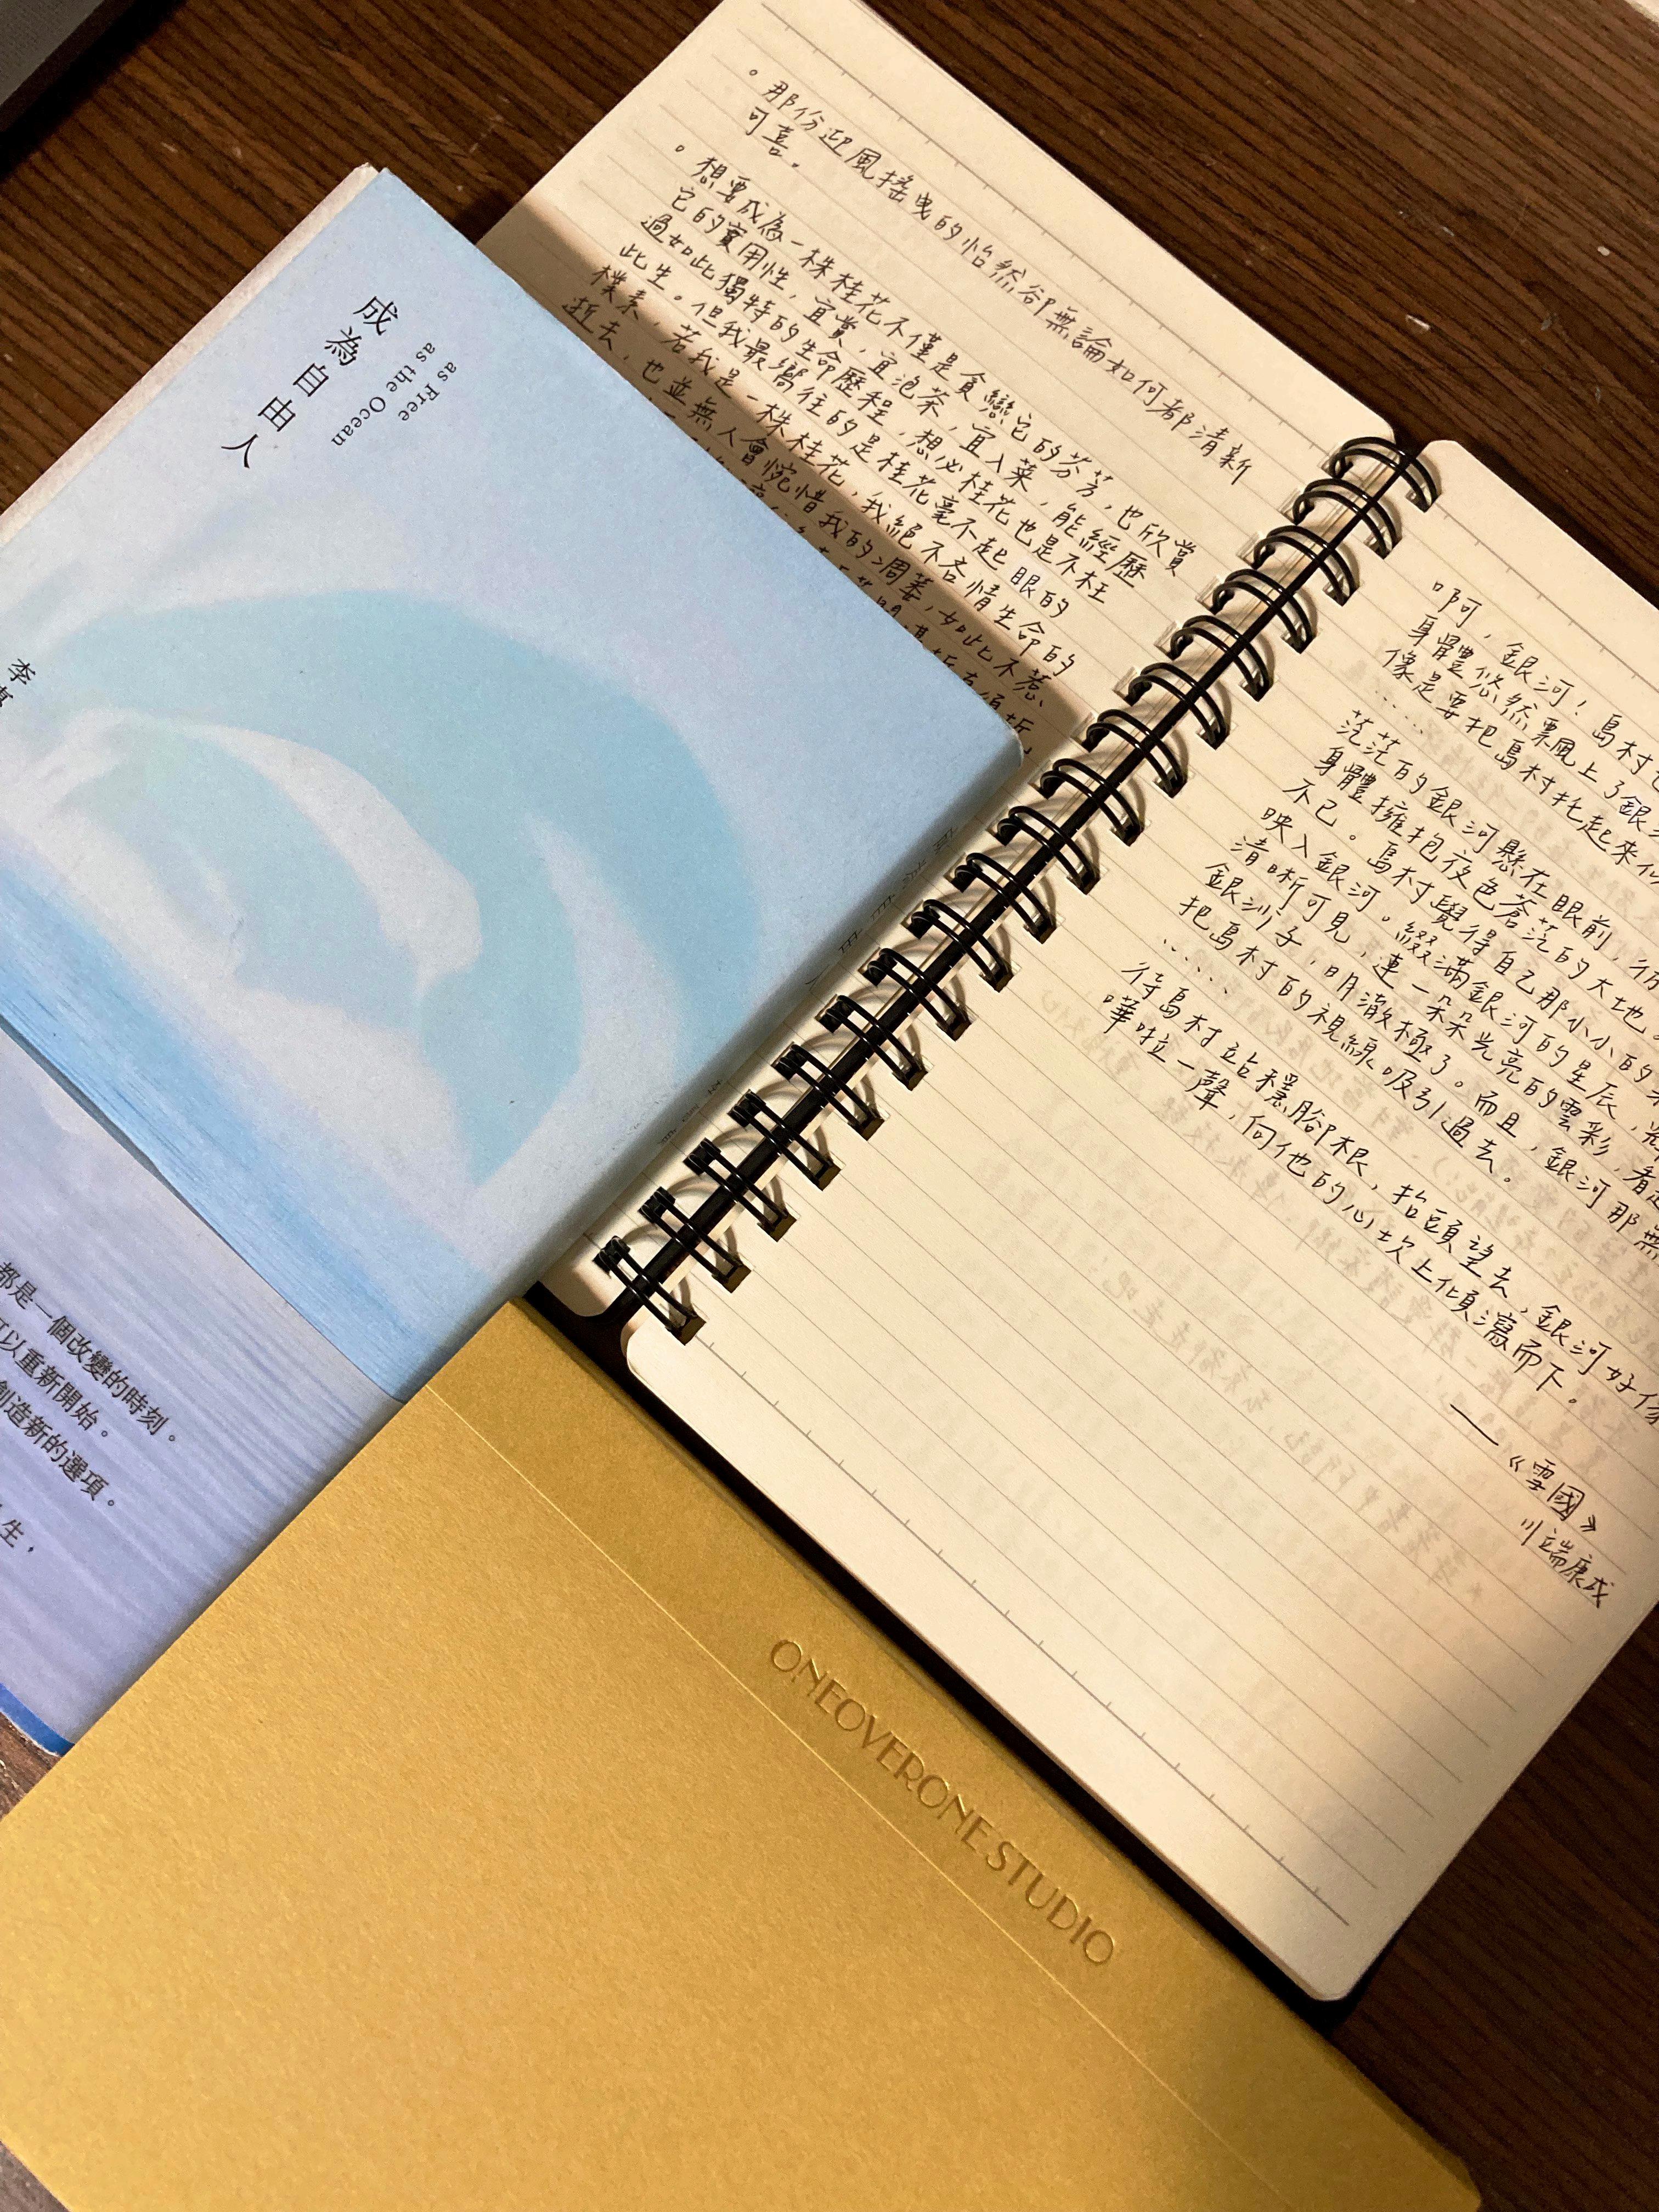 成為自由人
as Free
as the Ocean
李
都是一個改變的時刻。
可以重新開始。
創造新的選項。
生，
。那份迎風搖曳的怡然卻無論如何都清新
可喜。
。想要成為一株桂花不僅是貪戀它的芬芳，也欣賞
它的實用性，宜賞，宜泡茶，宜入菜，能經歷
過如此獨特的生命歷程，想必桂花也是不枉
此生。但我最嚮往的是桂花毫不起眼的
樸素，若我是一株桂花，我絕不吝惜生命的
逝去，也並無人會惋惜我的凋萎，如此不惹
啊，銀河！島村也
身體悠然飄上了銀河
像是要把島村托起來似
.....
茫茫的銀河懸在眼前，彷
身體擁抱夜色蒼茫的大地。
不已。島村覺得自己那小小的身
映入銀河。綴滿銀河的星辰，光
清晰可見，連一朵朵光亮的雲彩，看起
銀沙子，明澈極了。而且，銀河那無
把島村的視線吸引過去。
.....
待島村站穩腳根，抬頭望去，銀河好像
嘩啦一聲，向他的心坎上傾瀉而下。
——《雪國》
川端康成
ONEOVERONE STUDIO